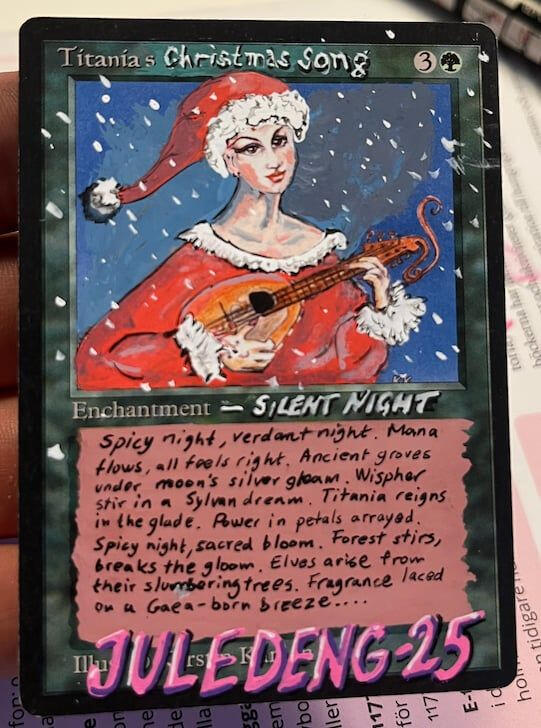 Titania's Christmas Song 3
Enchantment – SILENT NIGHT
Spicy night, verdant night. Mana
flows, all feels right. Ancient groves
under moon's silver gleam. Wispher
stir in a Sylvan dream. Titania reigns
in the glade. Power in petals arrayed.
Spicy night, sacred bloom. Forest stirs,
breaks the gloom. Elves arise from
their slumbering trees. Fragrance laced
on a Gaea-born breeze....
JULEDENG-25